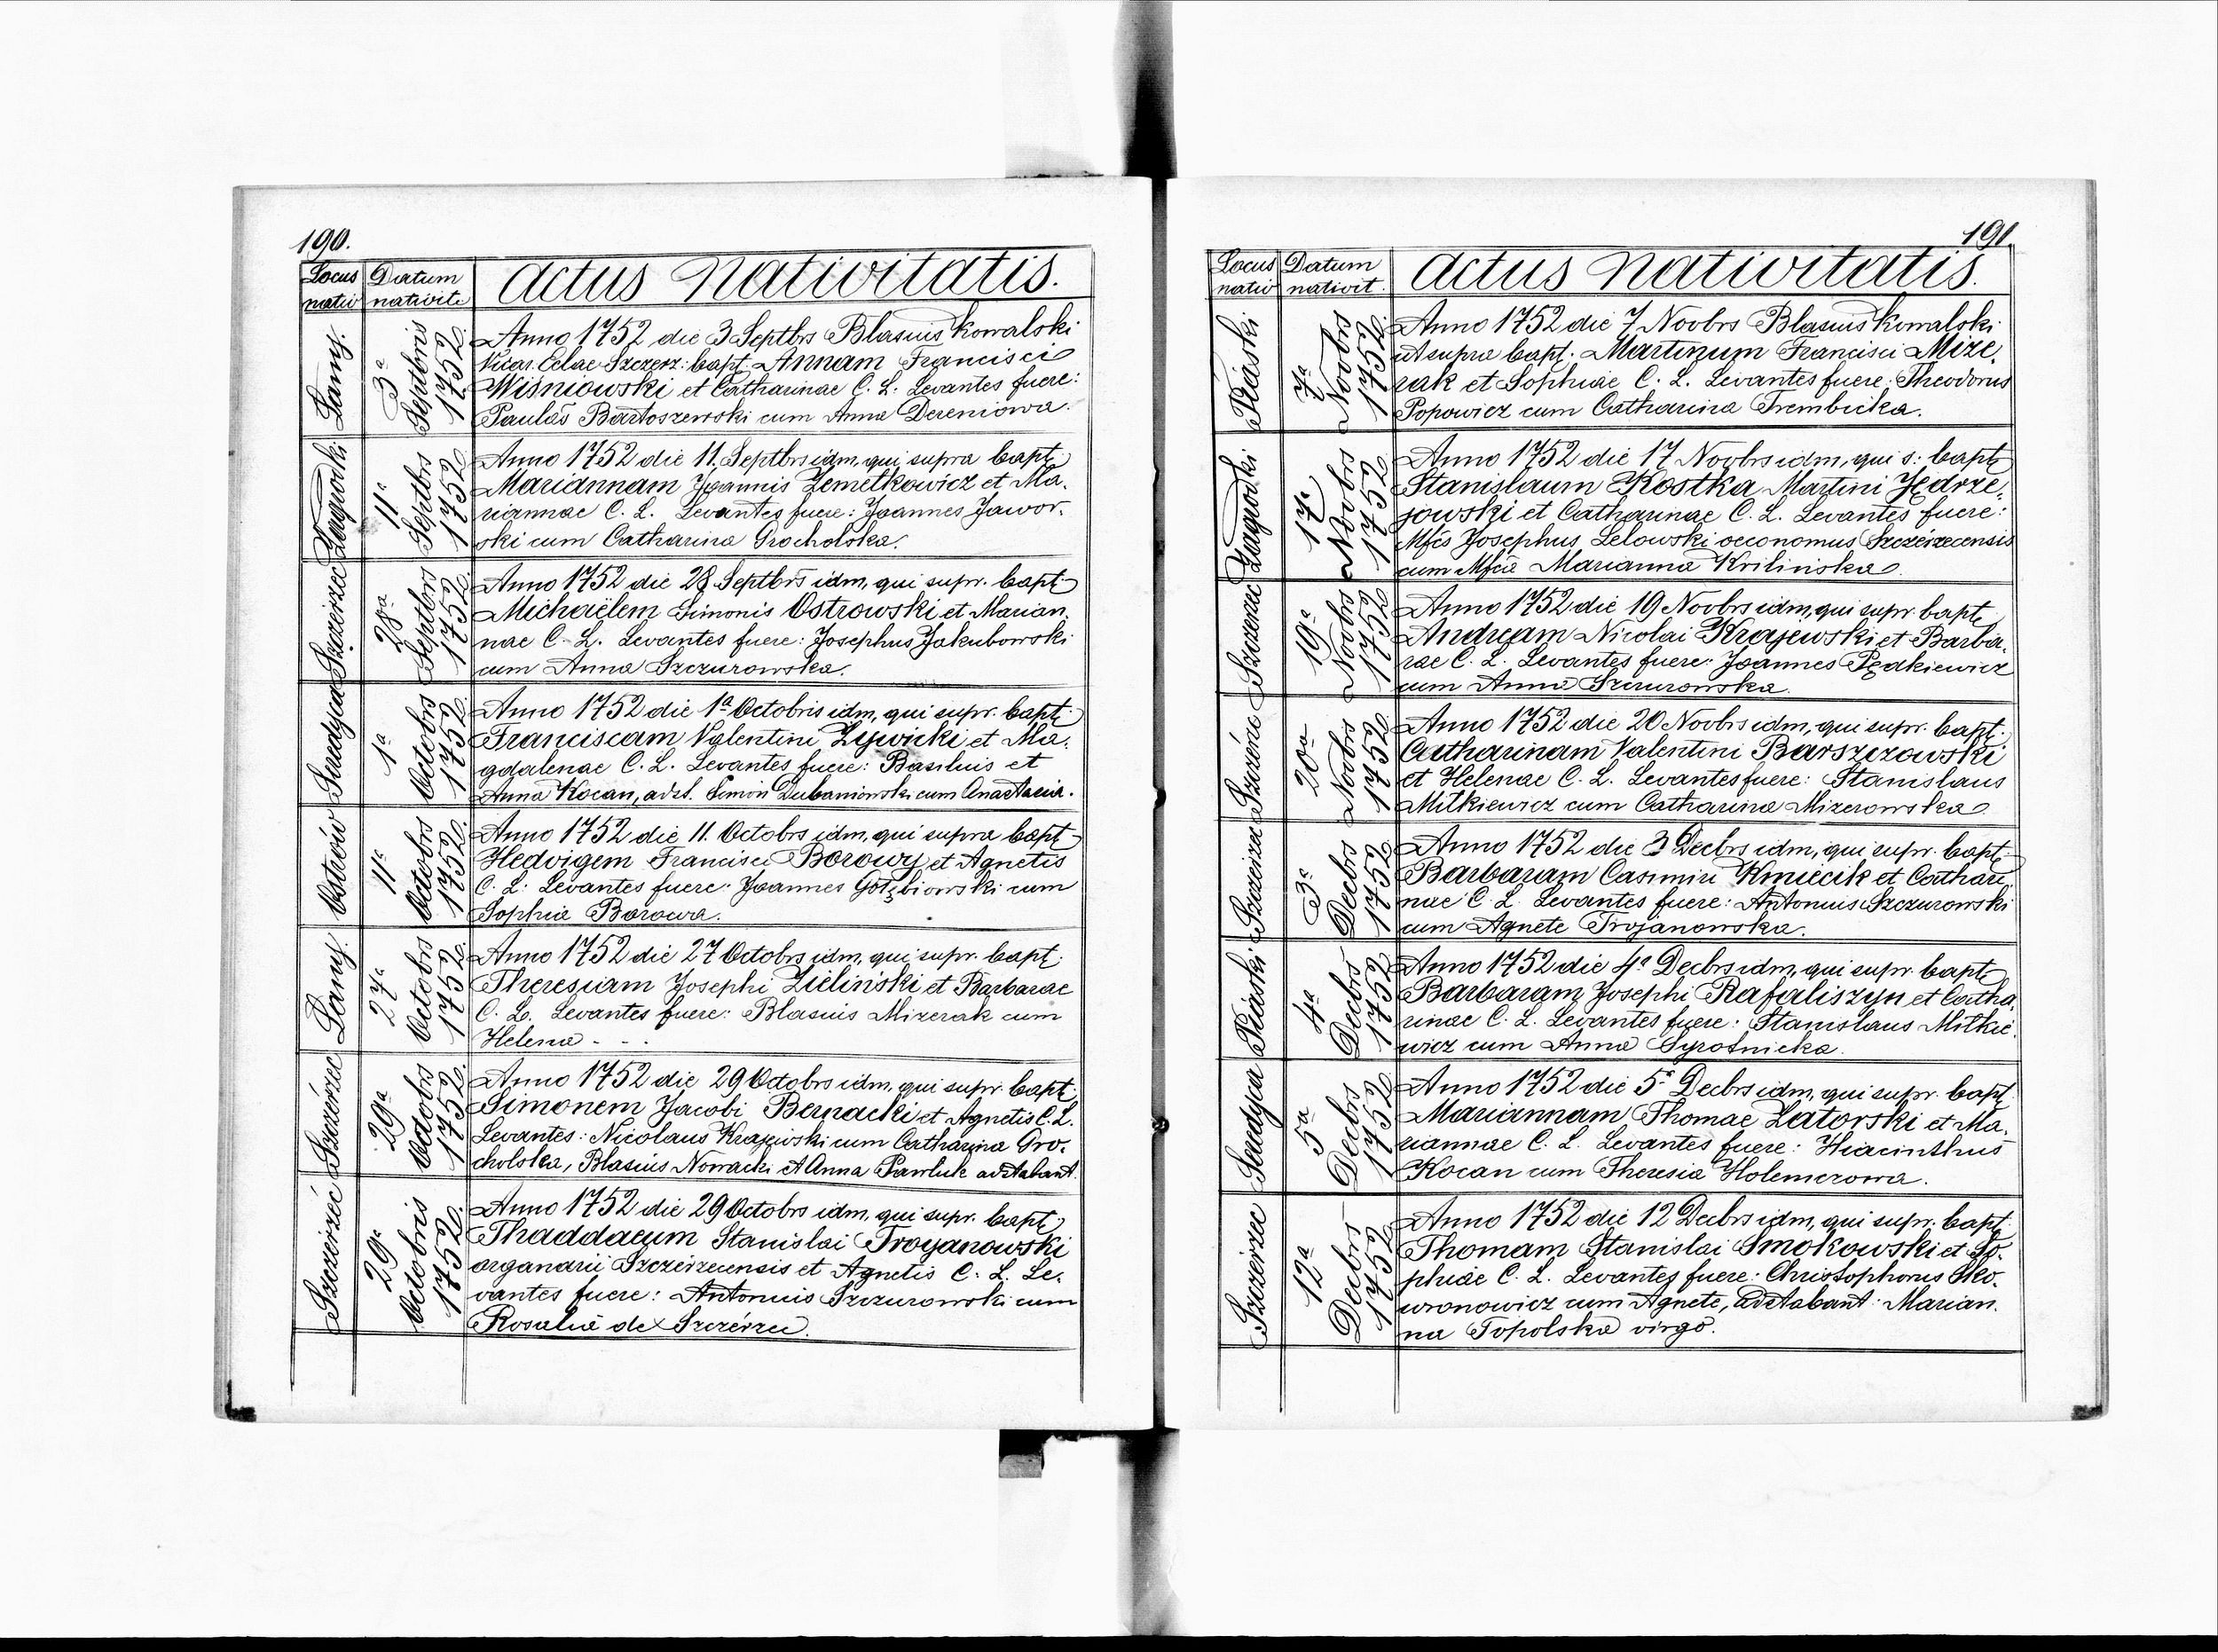 190.
Locus nativ
Datum nativit
Actus Nativitatis.
Łany.
3a Septbris 1752
Anno 1752 die 3 Septbrs Blasius Kowalski
Vicar. Eclae Szczerz: bapt. Annam Francisci
Wiśniowski et Catharinae C. L. Levantes fuere:
Paulus Bartoszewski cum Anna Dereniowa.
Zagrodki
11a Septbrs 1752
Anno 1752 die 11. Septbrs idm, qui supra bapt.
Mariannam Joannis Zemełkowicz et Ma-
riannae C. L. Levantes fuere: Joannes Jawor-
ski cum Catharina Grocholska.
Szczerzec
28a Septbrs 1752
Anno 1752 die 28 Septbrs idm, qui supr. bapt.
Michaëlem Simonis Ostrowski et Marian-
nae C. L. Levantes fuere: Josephus Jakubowski
cum Anna Szczurowska.
Serdyca
1a Octobrs 1752
Anno 1752 die 1a Octobris idm, qui supr. bapt.
Franciscam Valentini Zywicki et Ma-
gdalenae C. L. Levantes fuere: Basilius et
Anna Kocan, adst. Simon Dubaniowski cum Anastasia.
Ostrów
11a Octobrs 1752
Anno 1752 die 11. Octobrs idm, qui supra bapt.
Hedvigem Francisci Borowy et Agnetis
C. L: Levantes fuere: Joannes Gołębiowski cum
Sophia Borowa.
Łany.
27a Octobrs 1752
Anno 1752 die 27 Octobrs idm, qui supr. bapt.
Theresiam Josephi Zieliński et Barbarae
C. L. Levantes fuere: Blasius Mizerak cum
Helena - - -
Szczérzec
29a Octobrs 1752
Anno 1752 die 29 Octobrs idm, qui supr. bapt.
Simonem Jacobi Bernacki et Agnetis C. L.
Levantes: Nicolaus Krajewski cum Catharina Gro-
cholska, Blasius Nowacki et Anna Pawluk adstabant.
Szczérzec
29a Octobris 1752
Anno 1752 die 29 Octobrs idm, qui supr. bapt.
Thaddaeum Stanislai Troyanowski
organarii Szczérzecensis et Agnetis C. L. Le-
vantes fuere: Antonius Szczurowski cum
Rosalia de Szczérzec.
191.
Locus nativ
Datum nativit.
Actus Nativitatis.
Piaski
7a Novbrs 1752
Anno 1752 die 7 Novbrs Blasius Kowalski
ut supra bapt. Martinum Francisci Mize-
rak et Sophiae C. L. Levantes fuere: Theodorus
Popowicz cum Catharina Trembicka.
Zagrodki
17a Novbrs 1752
Anno 1752 die 17 Novbrs idm, qui s: bapt.
Stanislaum Kostka Martini Jędrze-
jowski et Catharinae C. L. Levantes fuere:
Mfcs Josephus Lelowski oeconomus Szczérzecensis
cum Mfca Marianna Krilińska.
Szczerzec
19a Novbrs 1752
Anno 1752 die 19 Novbrs idm, qui supr. bapt.
Andream Nicolai Krajewski et Barba-
rae C. L. Levantes fuere: Joannes Pędkiewicz
cum Anna Szczurowska.
Szczérzec
20a Novbrs 1752
Anno 1752 die 20 Novbrs idm, qui supr. bapt.
Catharinam Valentini Barszczowski
et Helenae C. L. Levantes fuere: Stanislaus
Mitkiewicz cum Catharina Mizerowska.
Szczerzec
3a Decbrs 1752
Anno 1752 die 3 Decbrs idm, qui supr. bapt.
Barbaram Casimiri Kmiecik et Cathari-
nae C. L. Levantes fuere: Antonius Szczurowski
cum Agnete Trojanowska.
Piaski
4a Decbrs 1752
Anno 1752 die 4a Decbrs idm, qui supr. bapt.
Barbaram Josephi Rafaliszyn et Catha-
rinae C. L. Levantes fuere: Stanislaus Mitkie-
wicz cum Anna Syrotnicka.
Serdyca
5a Decbrs 1752
Anno 1752 die 5a Decbrs idm, qui supr. bapt.
Mariannam Thomae Zatorski et Ma-
riannae C. L. Levantes fuere: Hiacinthus
Kocan cum Theresia Holemerowa.
Szczérzec
12a Decbrs 1752
Anno 1752 die 12 Decbrs idm, qui supr. bapt.
Thomam Stanislai Smokowski et So-
phiae C. L. Levantes fuere: Christophorus Sko-
wronowicz cum Agnete, adstabant: Marian-
na Topolska virgo.